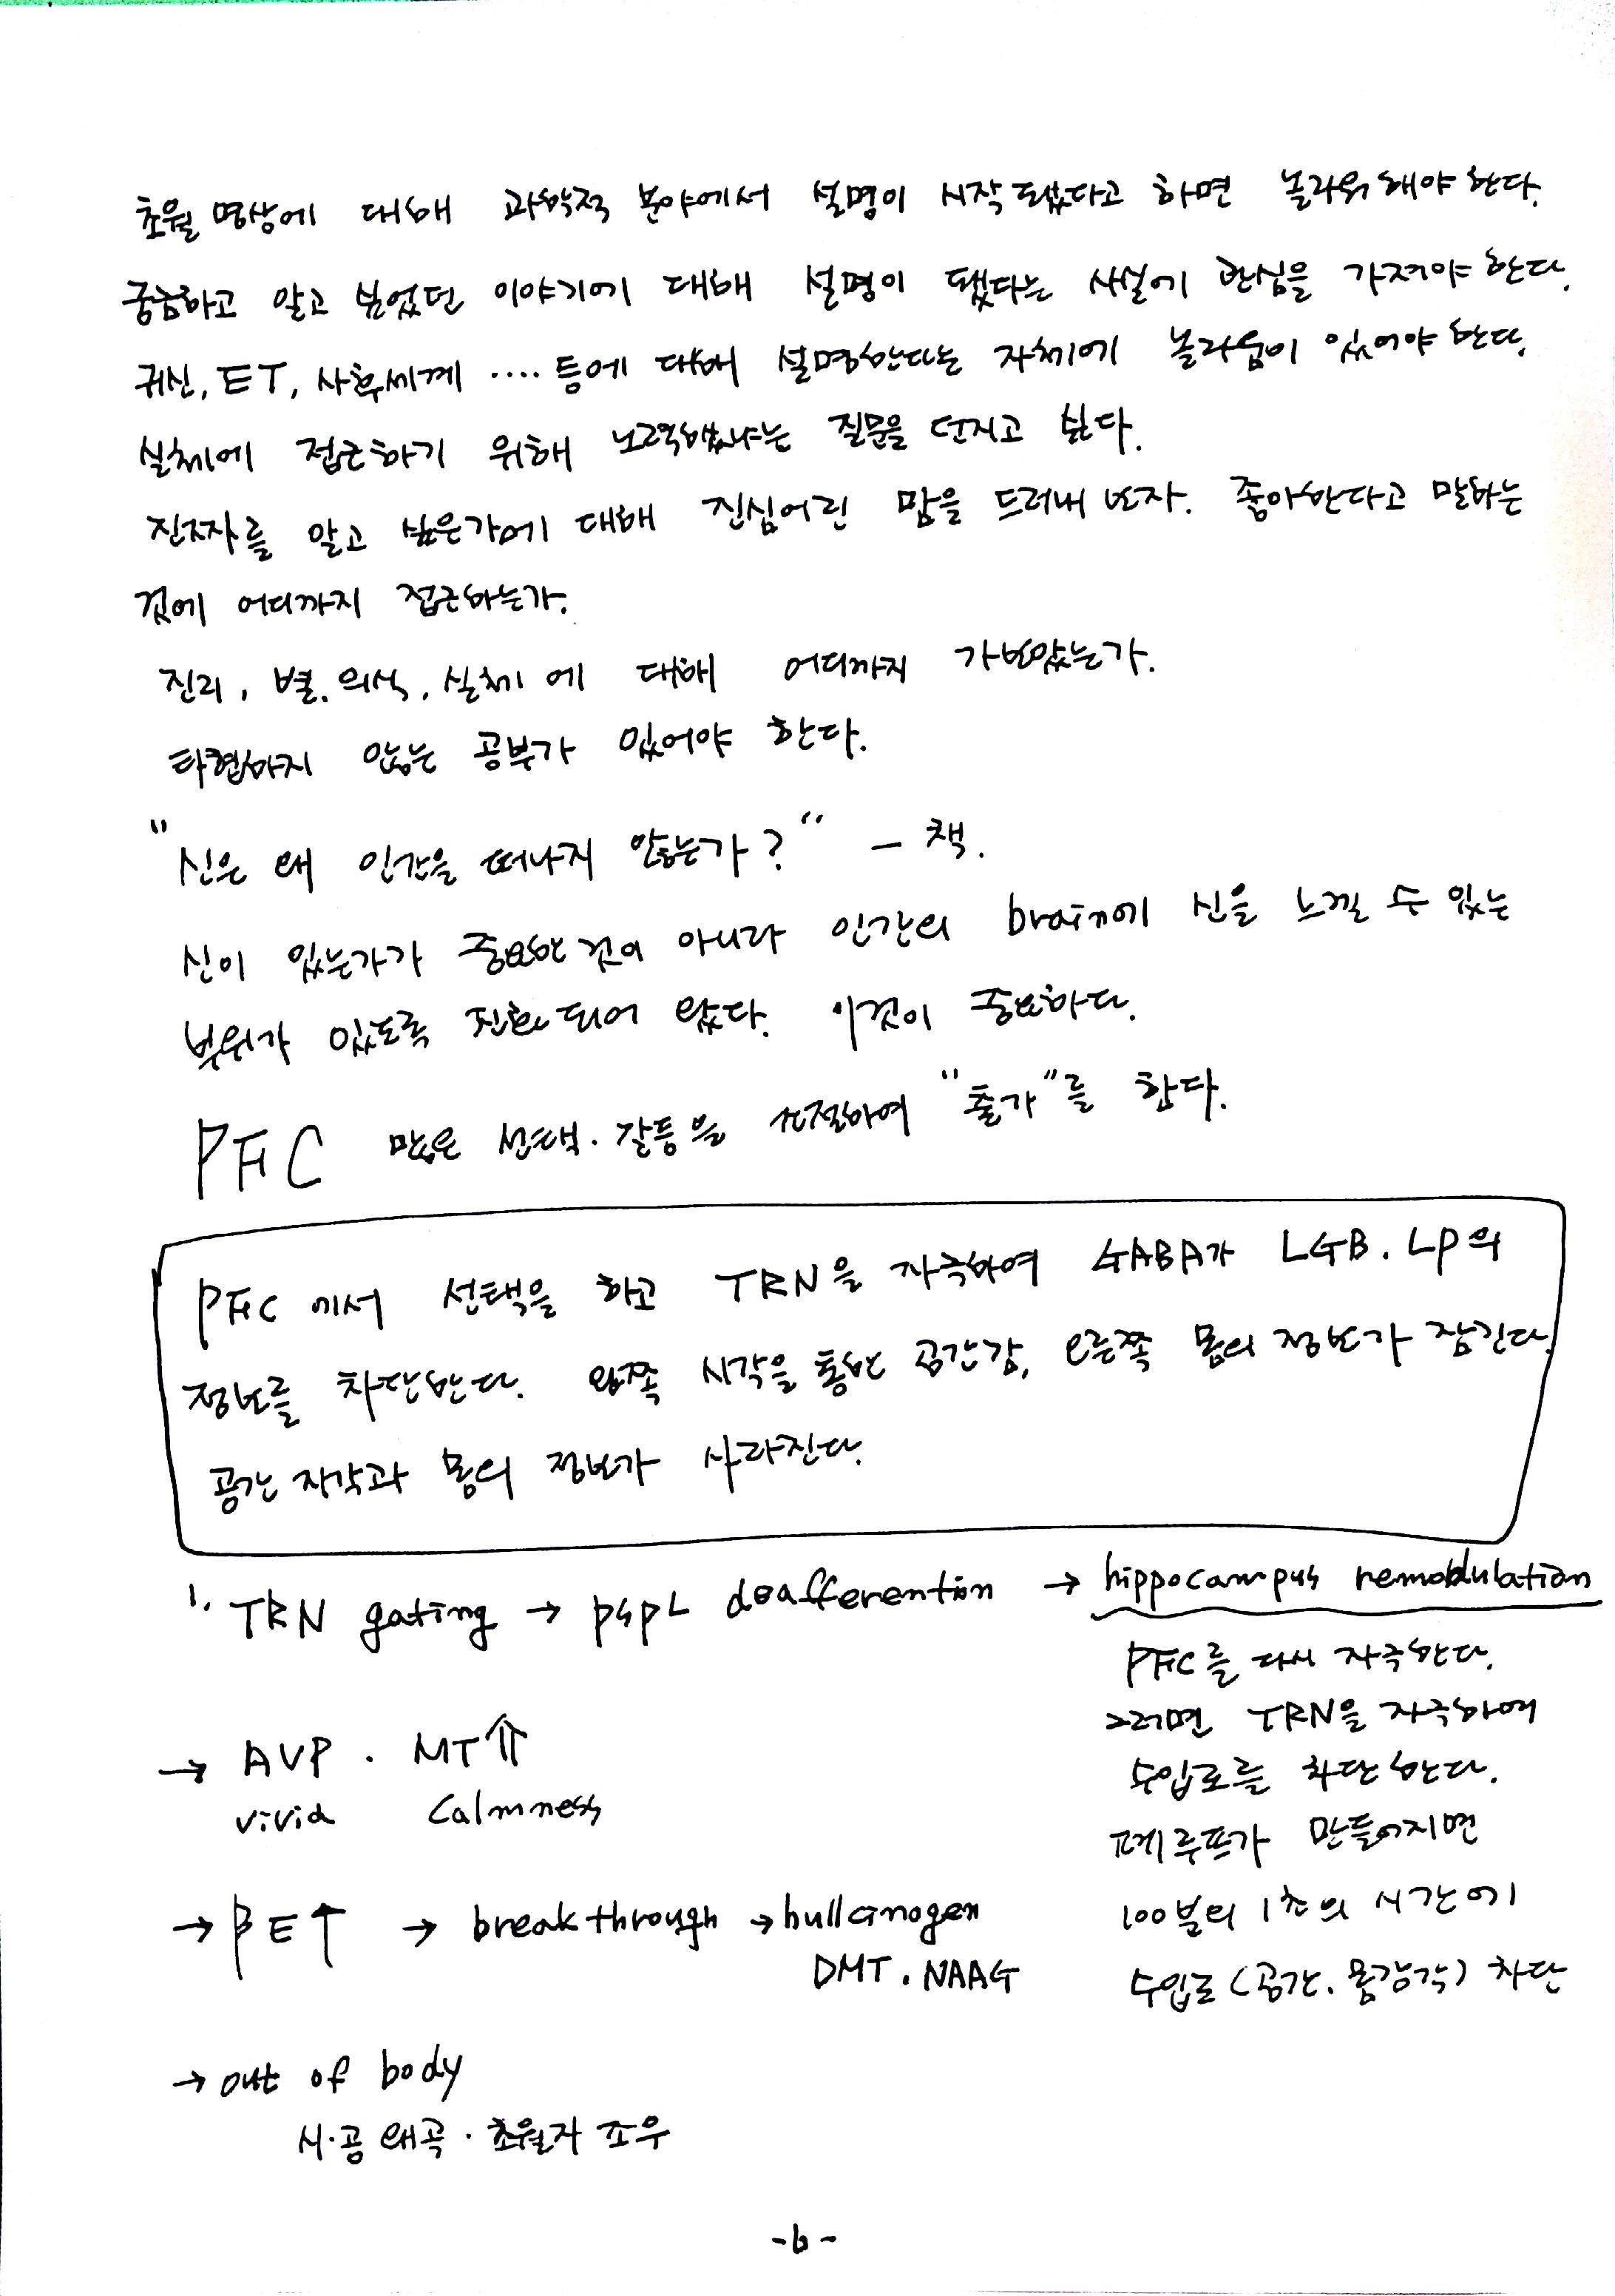 초월 명상에 대해 과학적 분야에서 설명이 시작 됐다고 하면 놀라워 해야 한다.
궁금하고 알고 싶었던 이야기에 대해 설명이 됐다는 사실에 관심을 가져야 한다.
귀신, ET, 사후세계 .... 등에 대해 설명한다는 자체에 놀라움이 있어야 한다.
실체에 접근하기 위해 노력했냐는 질문을 던지고 싶다.
진짜를 알고 싶은가에 대해 진심어린 맘을 드러내 보자. 좋아한다고 말하는
것에 어디까지 접근하는가.
진리, 별. 의식. 실체 에 대해 어디까지 가보았는가.
타협하지 않는 공부가 있어야 한다.
"신은 왜 인간을 떠나지 않는가?" - 책.
신이 있는가가 중요한 것이 아니라 인간의 brain에 신을 느낄 수 있는
부위가 있도록 진화 되어 왔다. 이것이 중요하다.
PFC 많은 선택. 갈등을 조절하여 "출가"를 한다.
PFC 에서 선택을 하고 TRN을 자극하여 GABA가 LGB. LP의
정보를 차단한다. 왼쪽 시각을 통한 공간감, 오른쪽 몸의 정보가 잠긴다.
공간 자각과 몸의 정보가 사라진다.
1. TRN gating → PSPL deafferention → hippocampus remodulation
PFC를 다시 자극한다.
그러면 TRN을 자극하여
수입로를 차단한다.
폐루프가 만들어지면
100분의 1초의 시간에
수입로(공간. 몸감각) 차단
→ AVP . MT⇑
vivid Calmness
→ PE↑ → breakthrough → hullcinogen
DMT. NAAG
→ out of body
시.공 왜곡. 초월자 조우
-6-